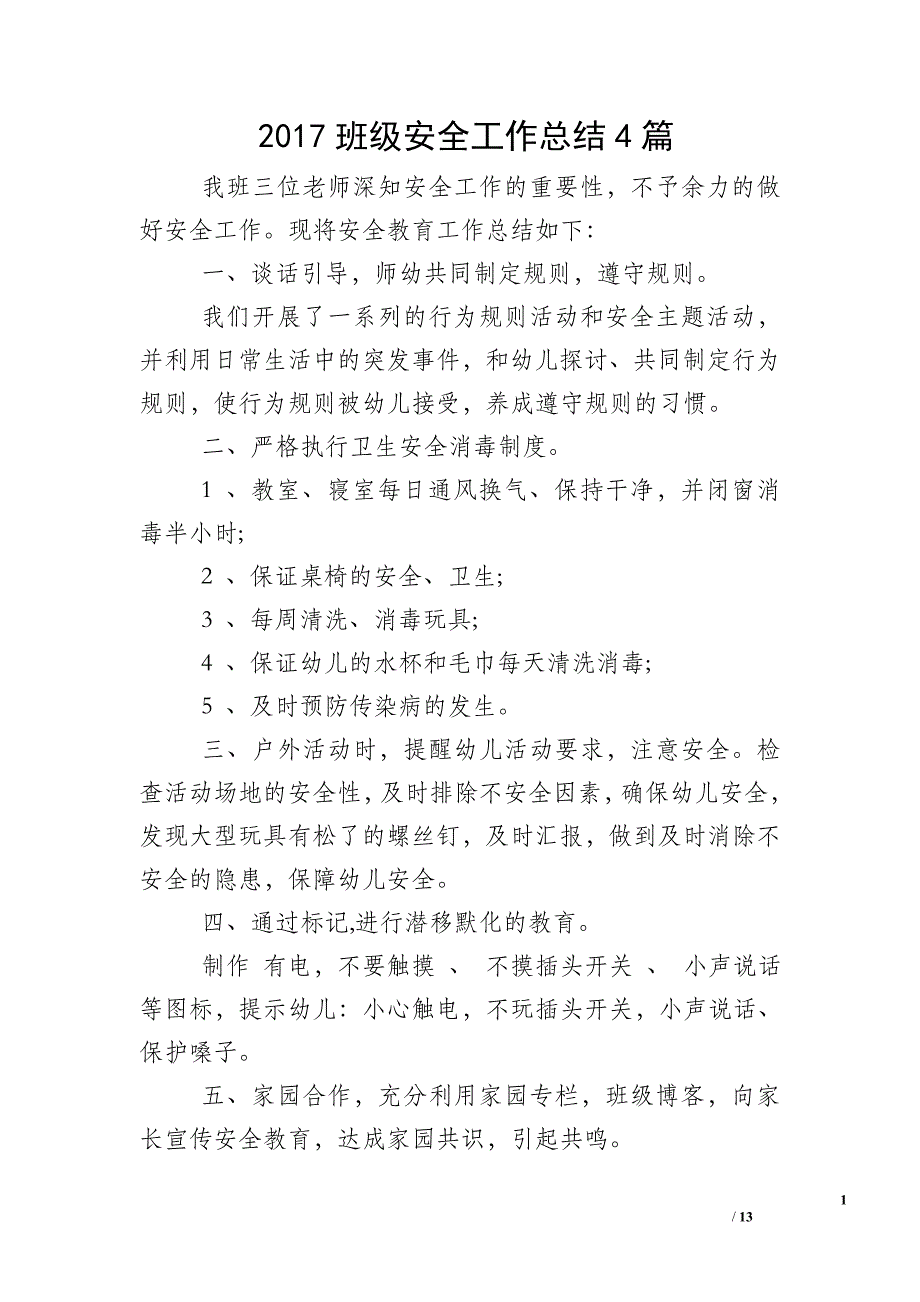 2017 班级安全工作总结 4 篇
我班三位老师深知安全工作的重要性，不予余力的做
好安全工作。现将安全教育工作总结如下：
一、谈话引导，师幼共同制定规则，遵守规则。
我们开展了一系列的行为规则活动和安全主题活动，
并利用日常生活中的突发事件，和幼儿探讨、共同制定行为
规则，使行为规则被幼儿接受，养成遵守规则的习惯。
二、严格执行卫生安全消毒制度。
1 、教室、寝室每日通风换气、保持干净，并闭窗消
毒半小时;
2 、保证桌椅的安全、卫生;
3 、每周清洗、消毒玩具;
4 、保证幼儿的水杯和毛巾每天清洗消毒;
5 、及时预防传染病的发生。
三、户外活动时，提醒幼儿活动要求，注意安全。检
查活动场地的安全性，及时排除不安全因素，确保幼儿安全，
发现大型玩具有松了的螺丝钉，及时汇报，做到及时消除不
安全的隐患，保障幼儿安全。
四、通过标记,进行潜移默化的教育。
制作 有电，不要触摸 、 不摸插头开关 、 小声说话
等图标，提示幼儿：小心触电，不玩插头开关，小声说话、
保护嗓子。
五、家园合作，充分利用家园专栏，班级博客，向家
长宣传安全教育，达成家园共识，引起共鸣。
1
/ 13